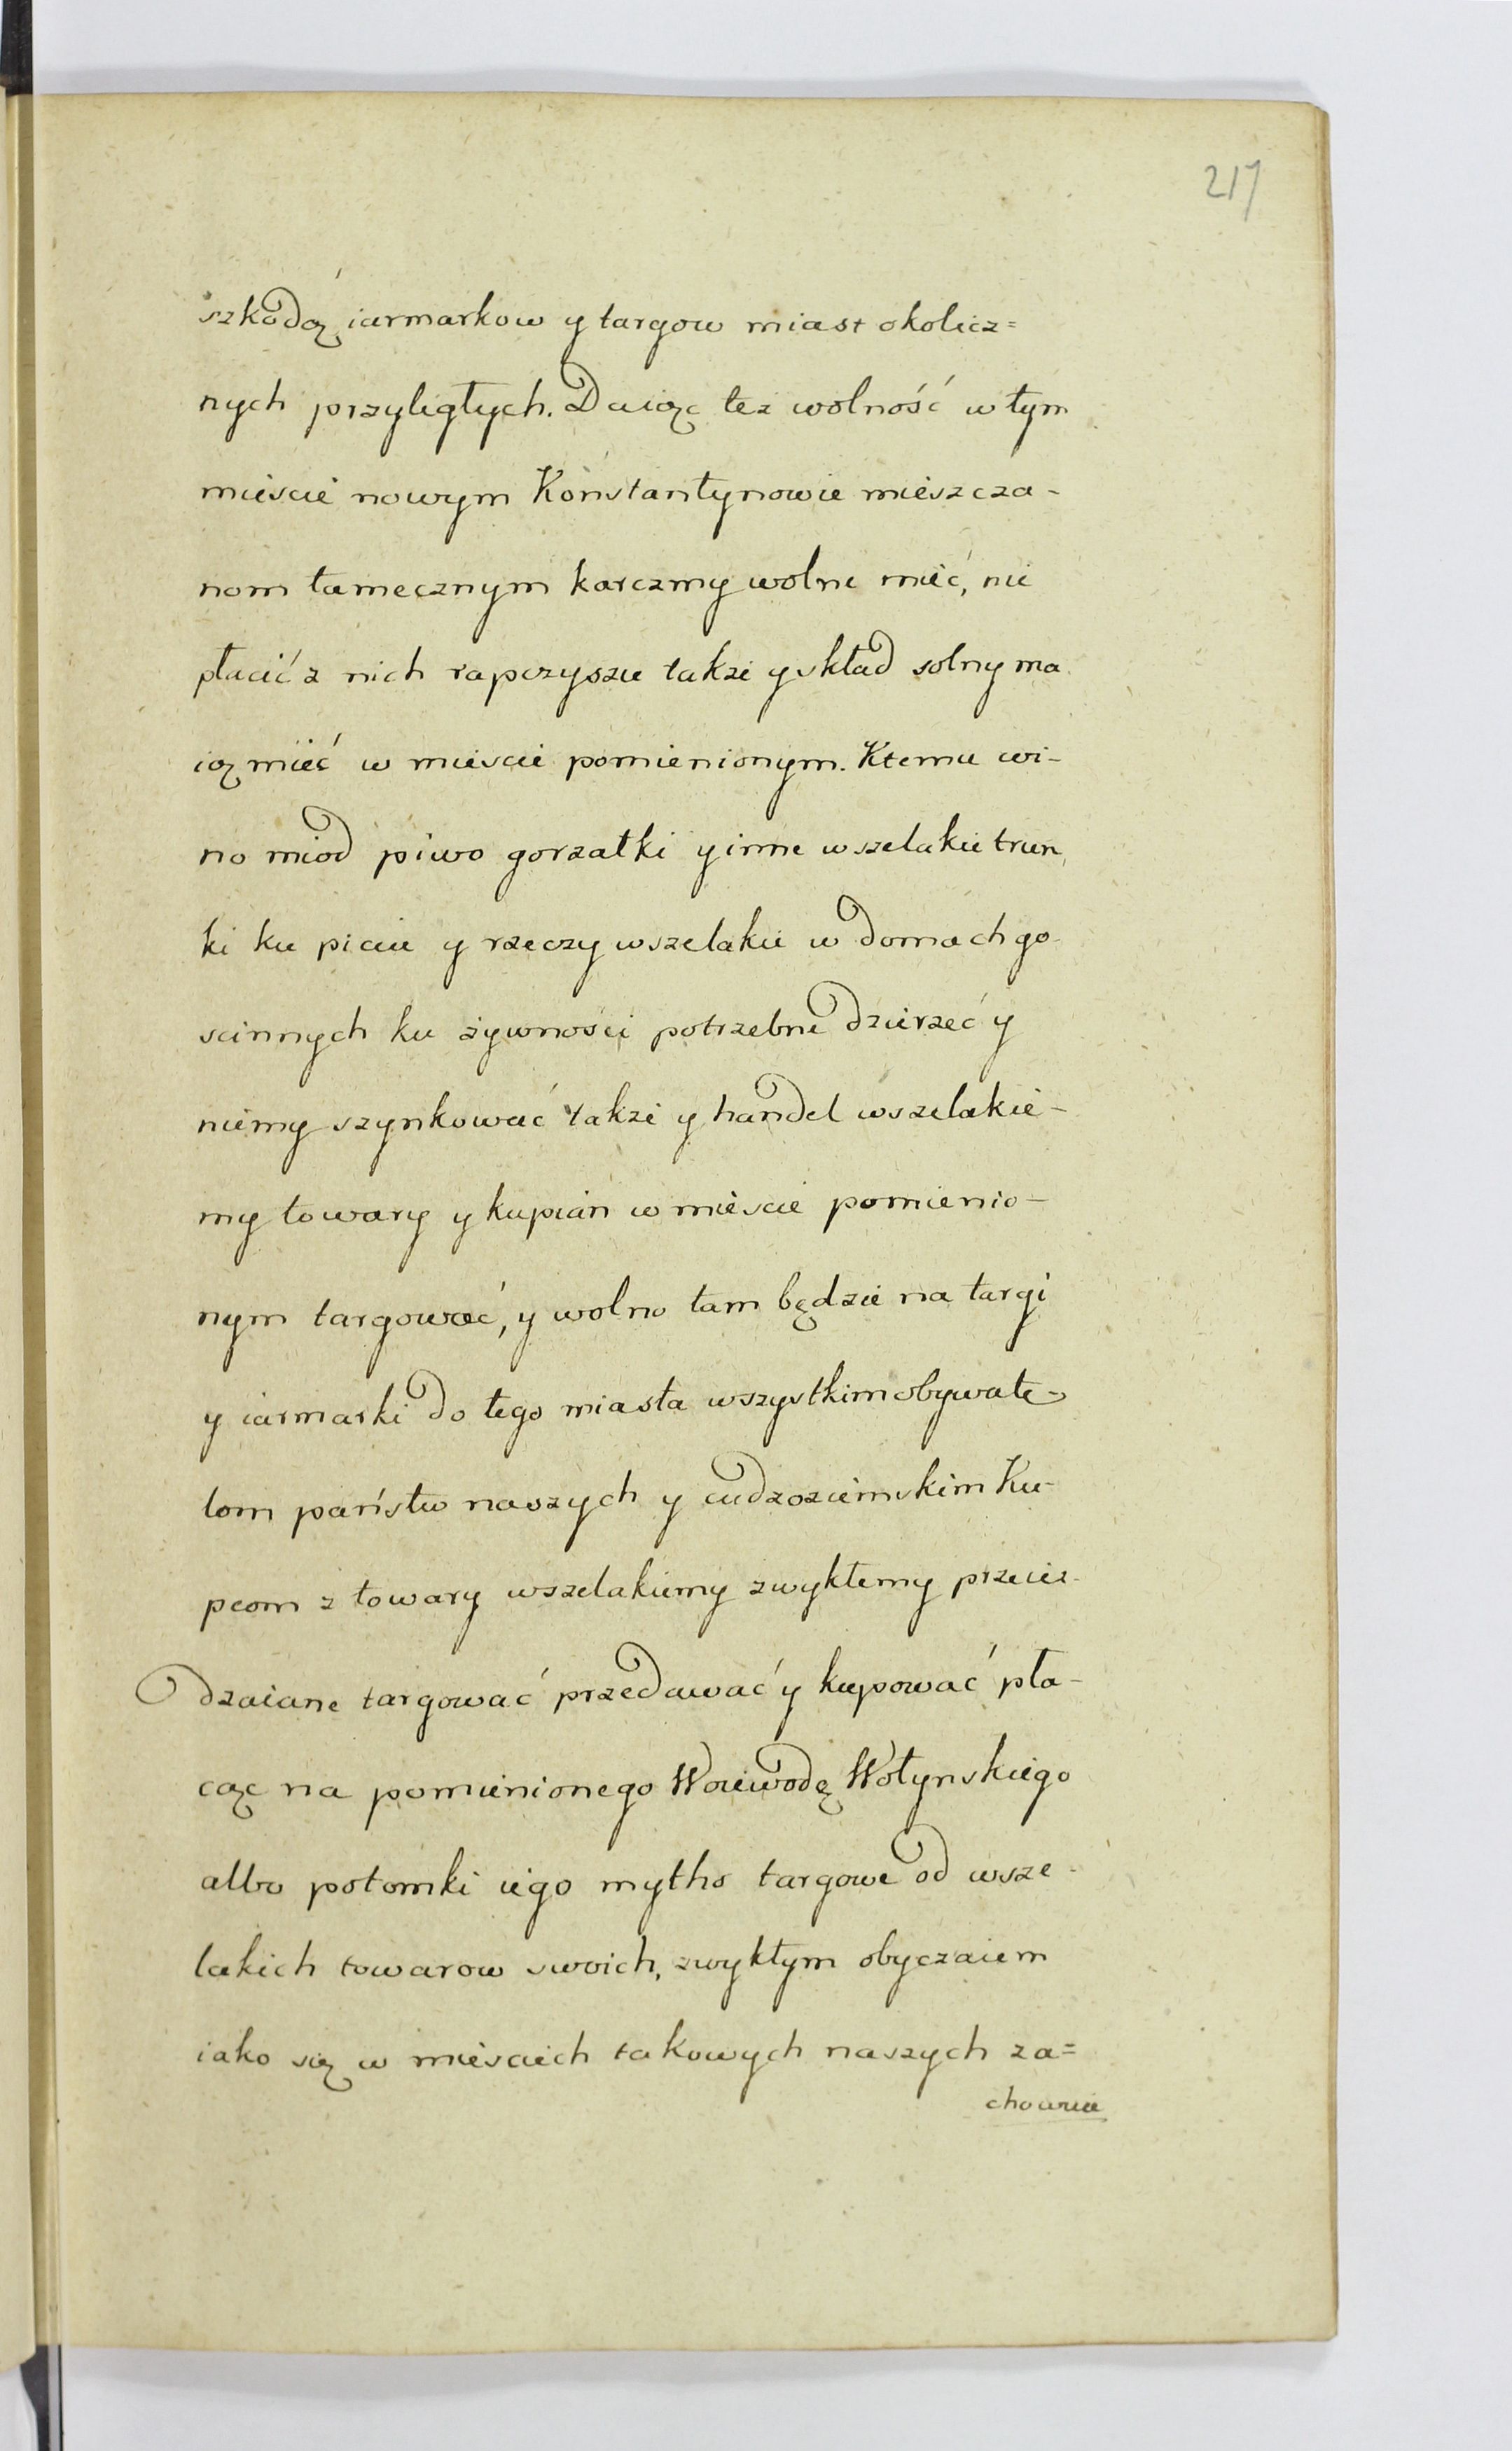 217
szkodą iarmarkow y targow miast okolicz=
nych przyległych. Daiąc tez wolność w tym
mieście nowym Konstantynowie mieszcza-
nom tamecznym karczmy wolne mieć, nie
płacić z nich rapczyszu takze y skład solny ma
ią mieć w miescie pomienionym. Ktemu wi-
no miod piwo gorzałki y inne wszelakie trun
ki ku piciu y rzeczy wszelakie w domach go-
scinnych ku żywnosci potrzebne dzierzeć y
niemy szynkować takze y handel wszelakie-
my towary y kupian w miescie pomienio-
nym targować, y wolno tam będzie na targi
y iarmarki do tego miasta wszystkim obywate-
lom państw naszych y cudzoziemskim Ku-
pcom z towary wszelakiemy zwykłemy przeież-
dzaiane targować przedawać y kupować pła-
cąc na pomienionego Woiewodę Wołynskiego
albo potomki iego mytho targowe od wsze-
lakich towarow swoich, zwykłym obyczaiem
iako się w miesciech takowych naszych za=
chowuie